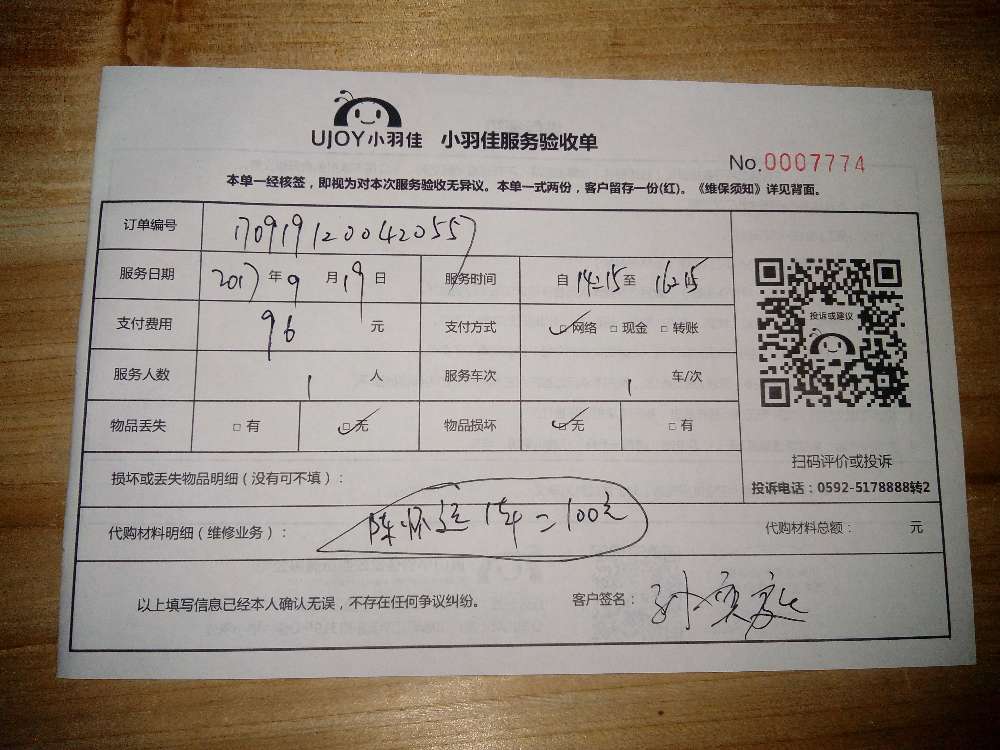 UJOY小羽佳 小羽佳服务验收单
No.0007774
本单一经核签，即视为对本次服务验收无异议。本单一式两份，客户留存一份(红)。《维保须知》详见背面。
订单编号 170919120042055
服务日期 2017年9月19日 服务时间 自14:15至16:15
支付费用 96元 支付方式 网络 现金 转账
投诉或建议
服务人数 1人 服务车次 1车/次
物品丢失 有 无 物品损坏 无 有
扫码评价或投诉
损坏或丢失物品明细（没有可不填）：
投诉电话：0592-5178888转2
代购材料明细（维修业务）： 陈怀 = 100元 代购材料总额： 元
以上填写信息已经本人确认无误，不存在任何争议纠纷。 客户签名：